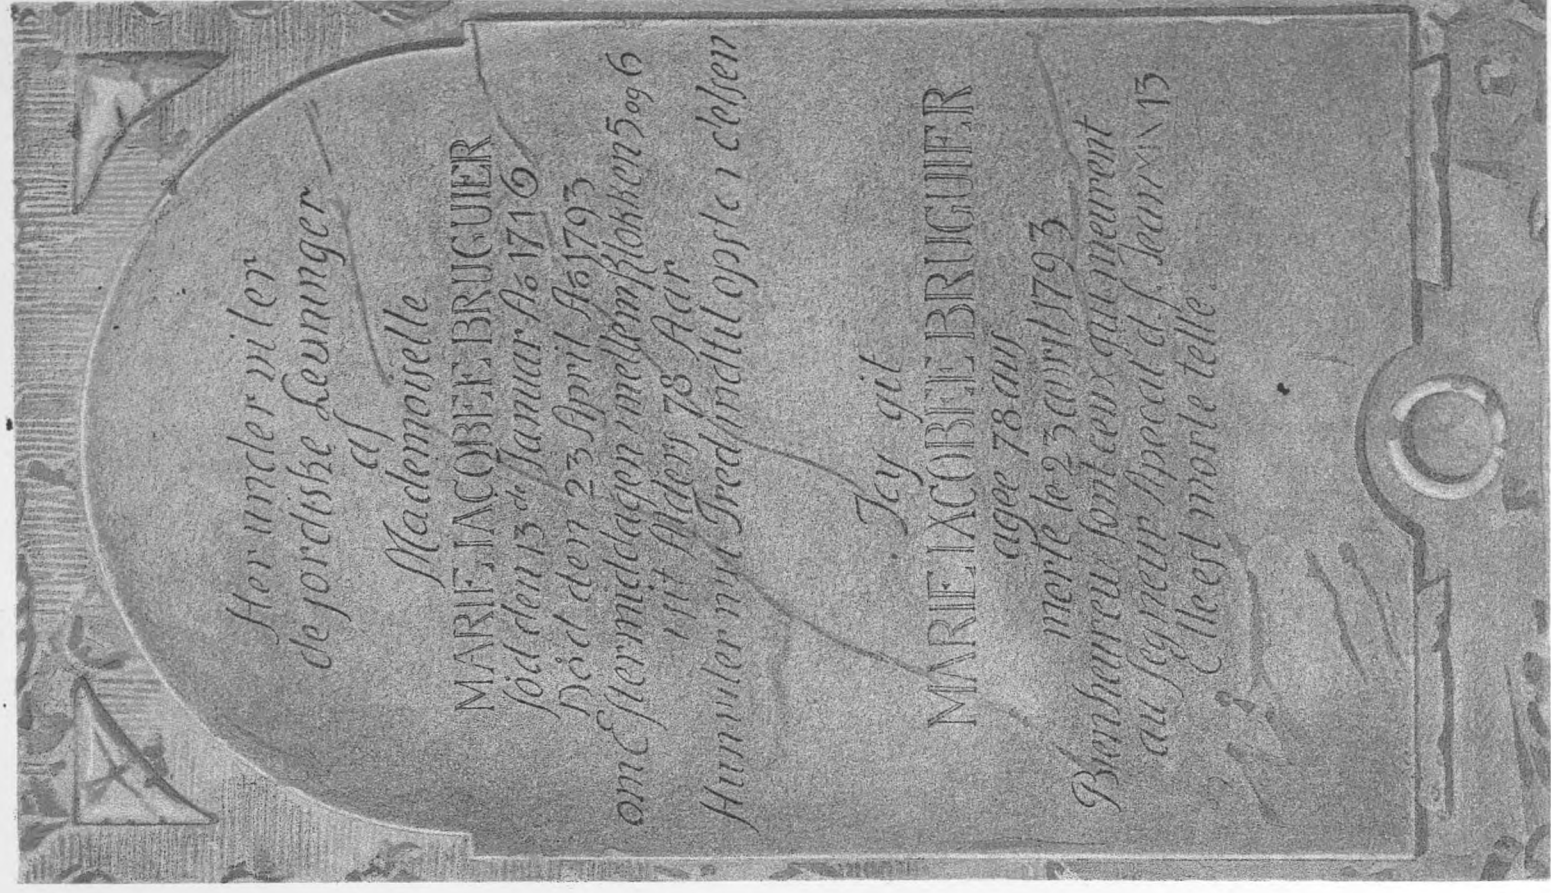 Her under viler
de jordiske Leuninger
af
Mademoiselle
MARIE IACOBEE BRUGUIER
föd den 13 de Januar Aö 1716
Död den 23 April Aö 1793
om Eftermiddagen mellem Klokken 5 og 6
i sit Alders 78 Aar
Hun viler nu i Fred indtil opstandelsen
Icy git
MARIE IACOBEE BRUGUIER
agée 78 ans
morte le 23 avril 1793
Bienheureux sont ceux qui meurent
au seigneur Apocal d. S. Jean 13
Elle est morte telle.